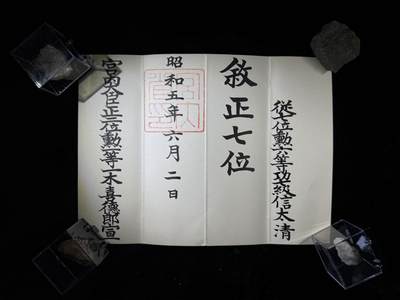 従七位勲六等功七級信太清
敘正七位
昭和五年六月二日
宮内大臣正三位勲一等一木喜徳郎宣